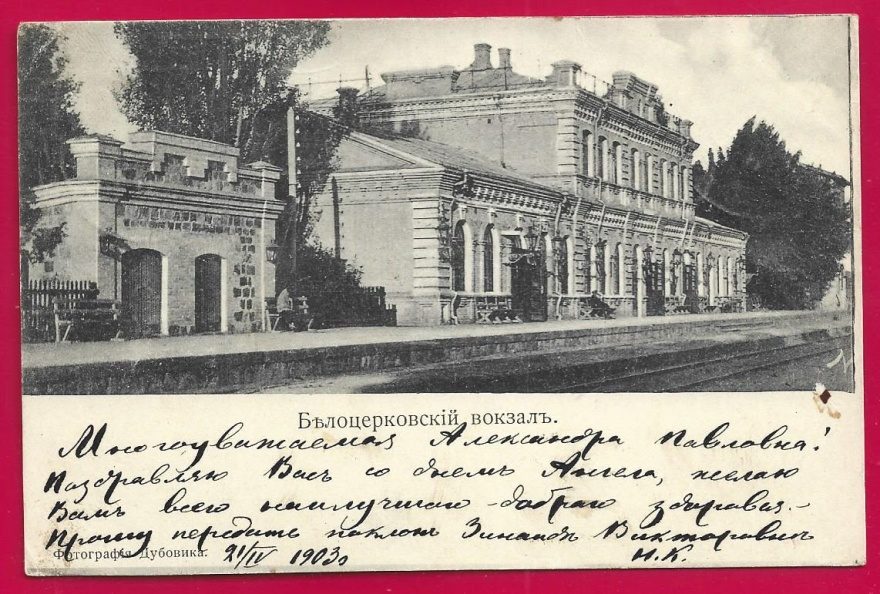 Бѣлоцерковскій вокзалъ.
Многоуважаемая Александра Павловна!
Поздравляю Васъ со днемъ Ангела, желаю
Вамъ всего наилучшаго - добраго здоровья. -
Прошу передать поклонъ Зинаидѣ Викторовнѣ
Фотографія Дубовика. 21/IV 1903 Н.К.